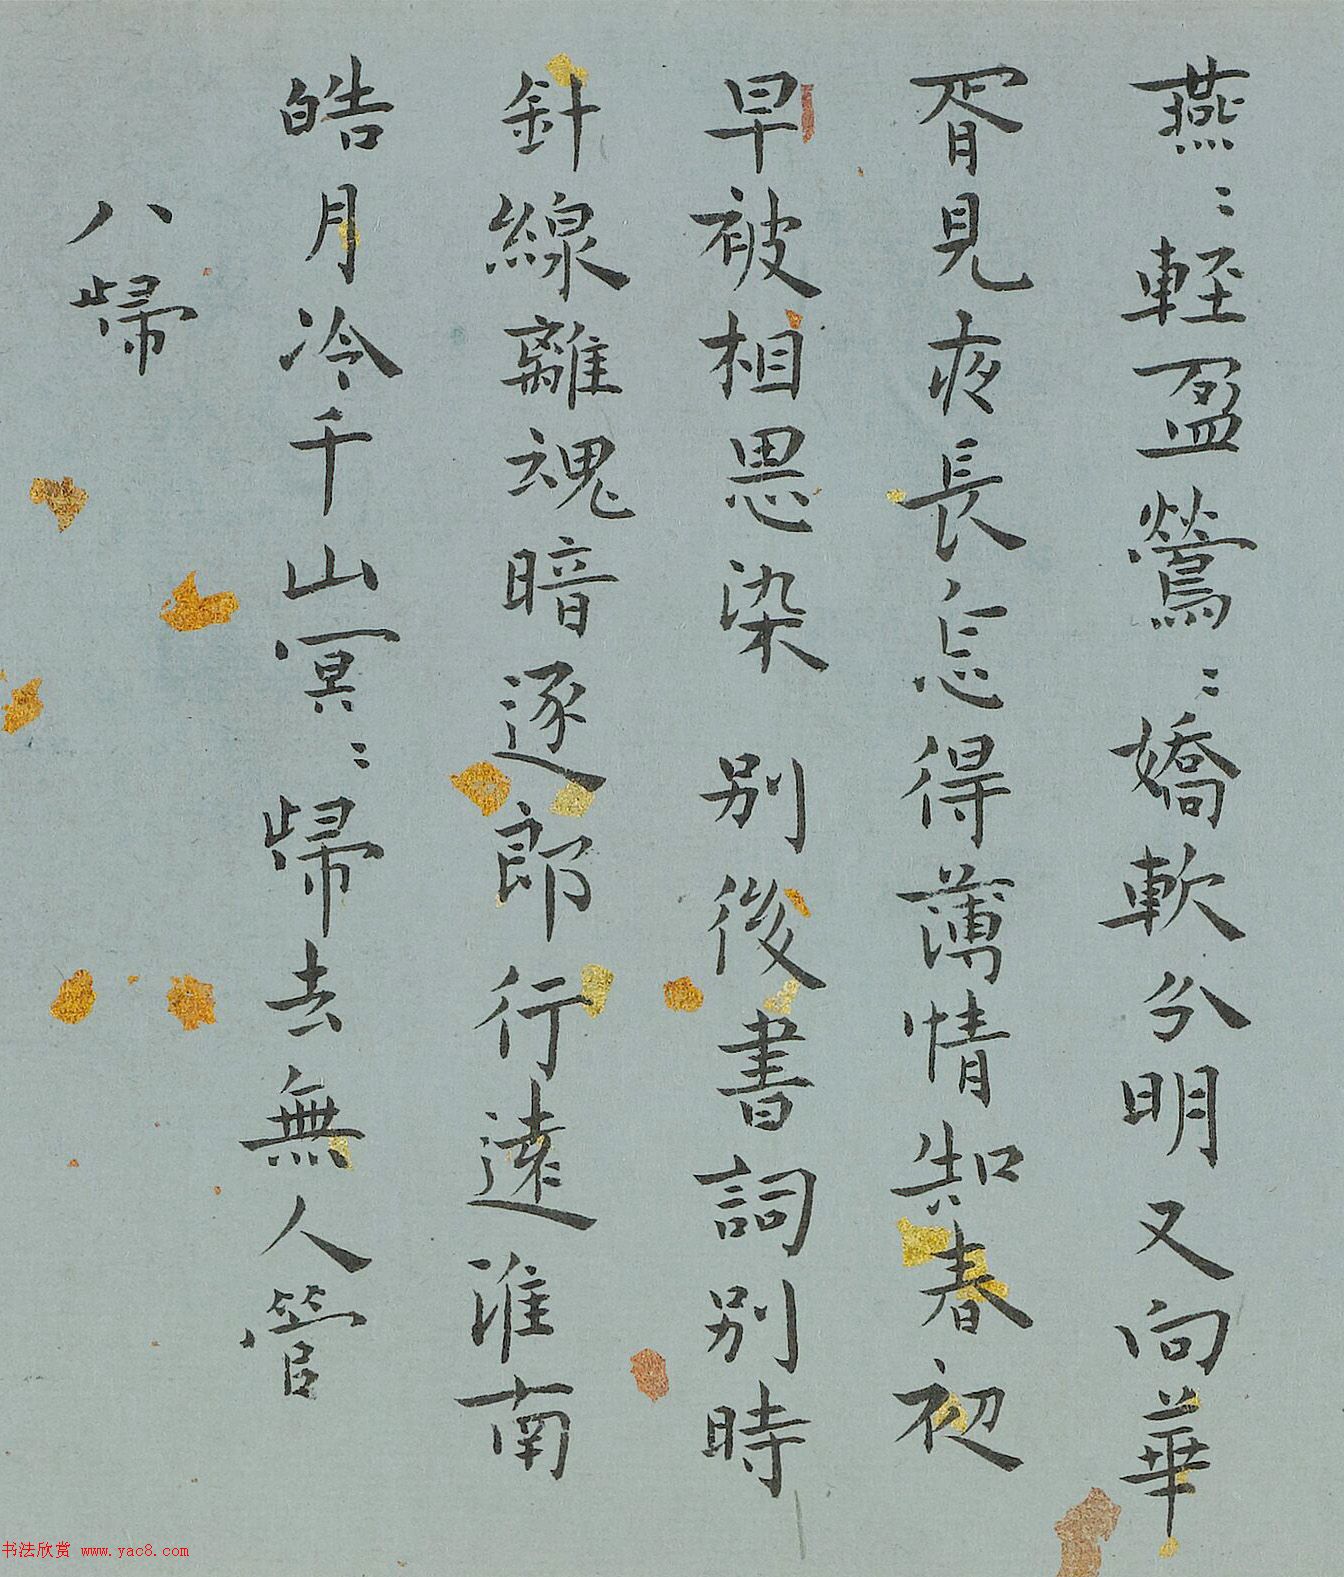 燕〻輕盈鶯〻嬌軟分明又向華
胥見夜長怎得薄情知春初
早被相思染　別後書詞別時
針線離魂暗逐郎行遠淮南
皓月冷千山冥〻歸去無人管
八歸
书法欣赏 www.yac8.com